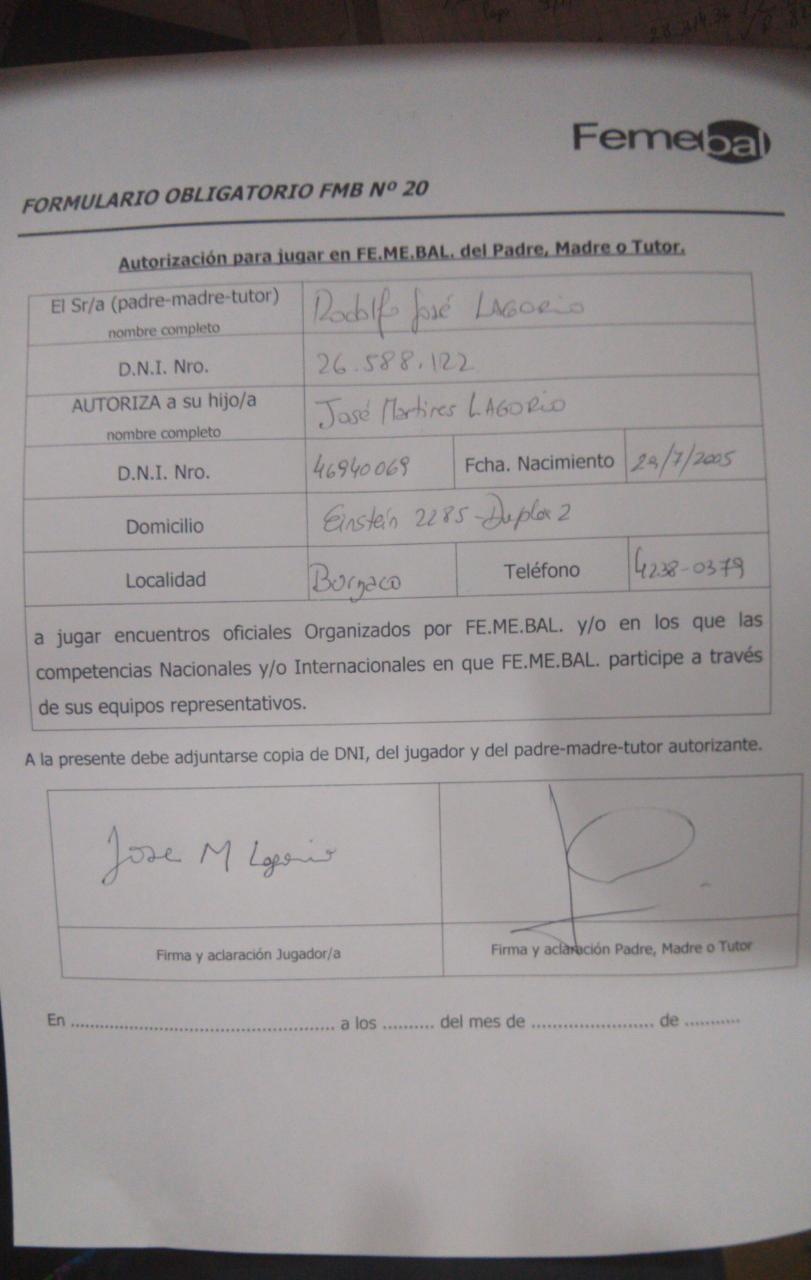 Femebal
FORMULARIO OBLIGATORIO FMB Nº 20
Autorización para jugar en FE.ME.BAL. del Padre, Madre o Tutor.
El Sr/a (padre-madre-tutor) Rodolfo José LAGORIO
nombre completo
D.N.I. Nro. 26.588.122
AUTORIZA a su hijo/a José Martires LAGORIO
nombre completo
D.N.I. Nro. 46940069 Fcha. Nacimiento 29/7/2005
Domicilio Einstein 2285 - Duplex 2
Localidad Burzaco Teléfono 4238-0379
a jugar encuentros oficiales Organizados por FE.ME.BAL. y/o en los que las
competencias Nacionales y/o Internacionales en que FE.ME.BAL. participe a través
de sus equipos representativos.
A la presente debe adjuntarse copia de DNI, del jugador y del padre-madre-tutor autorizante.
Jose M Lagorio
Firma y aclaración Jugador/a Firma y aclaración Padre, Madre o Tutor
En ................................................ a los .......... del mes de ....................... de ...........